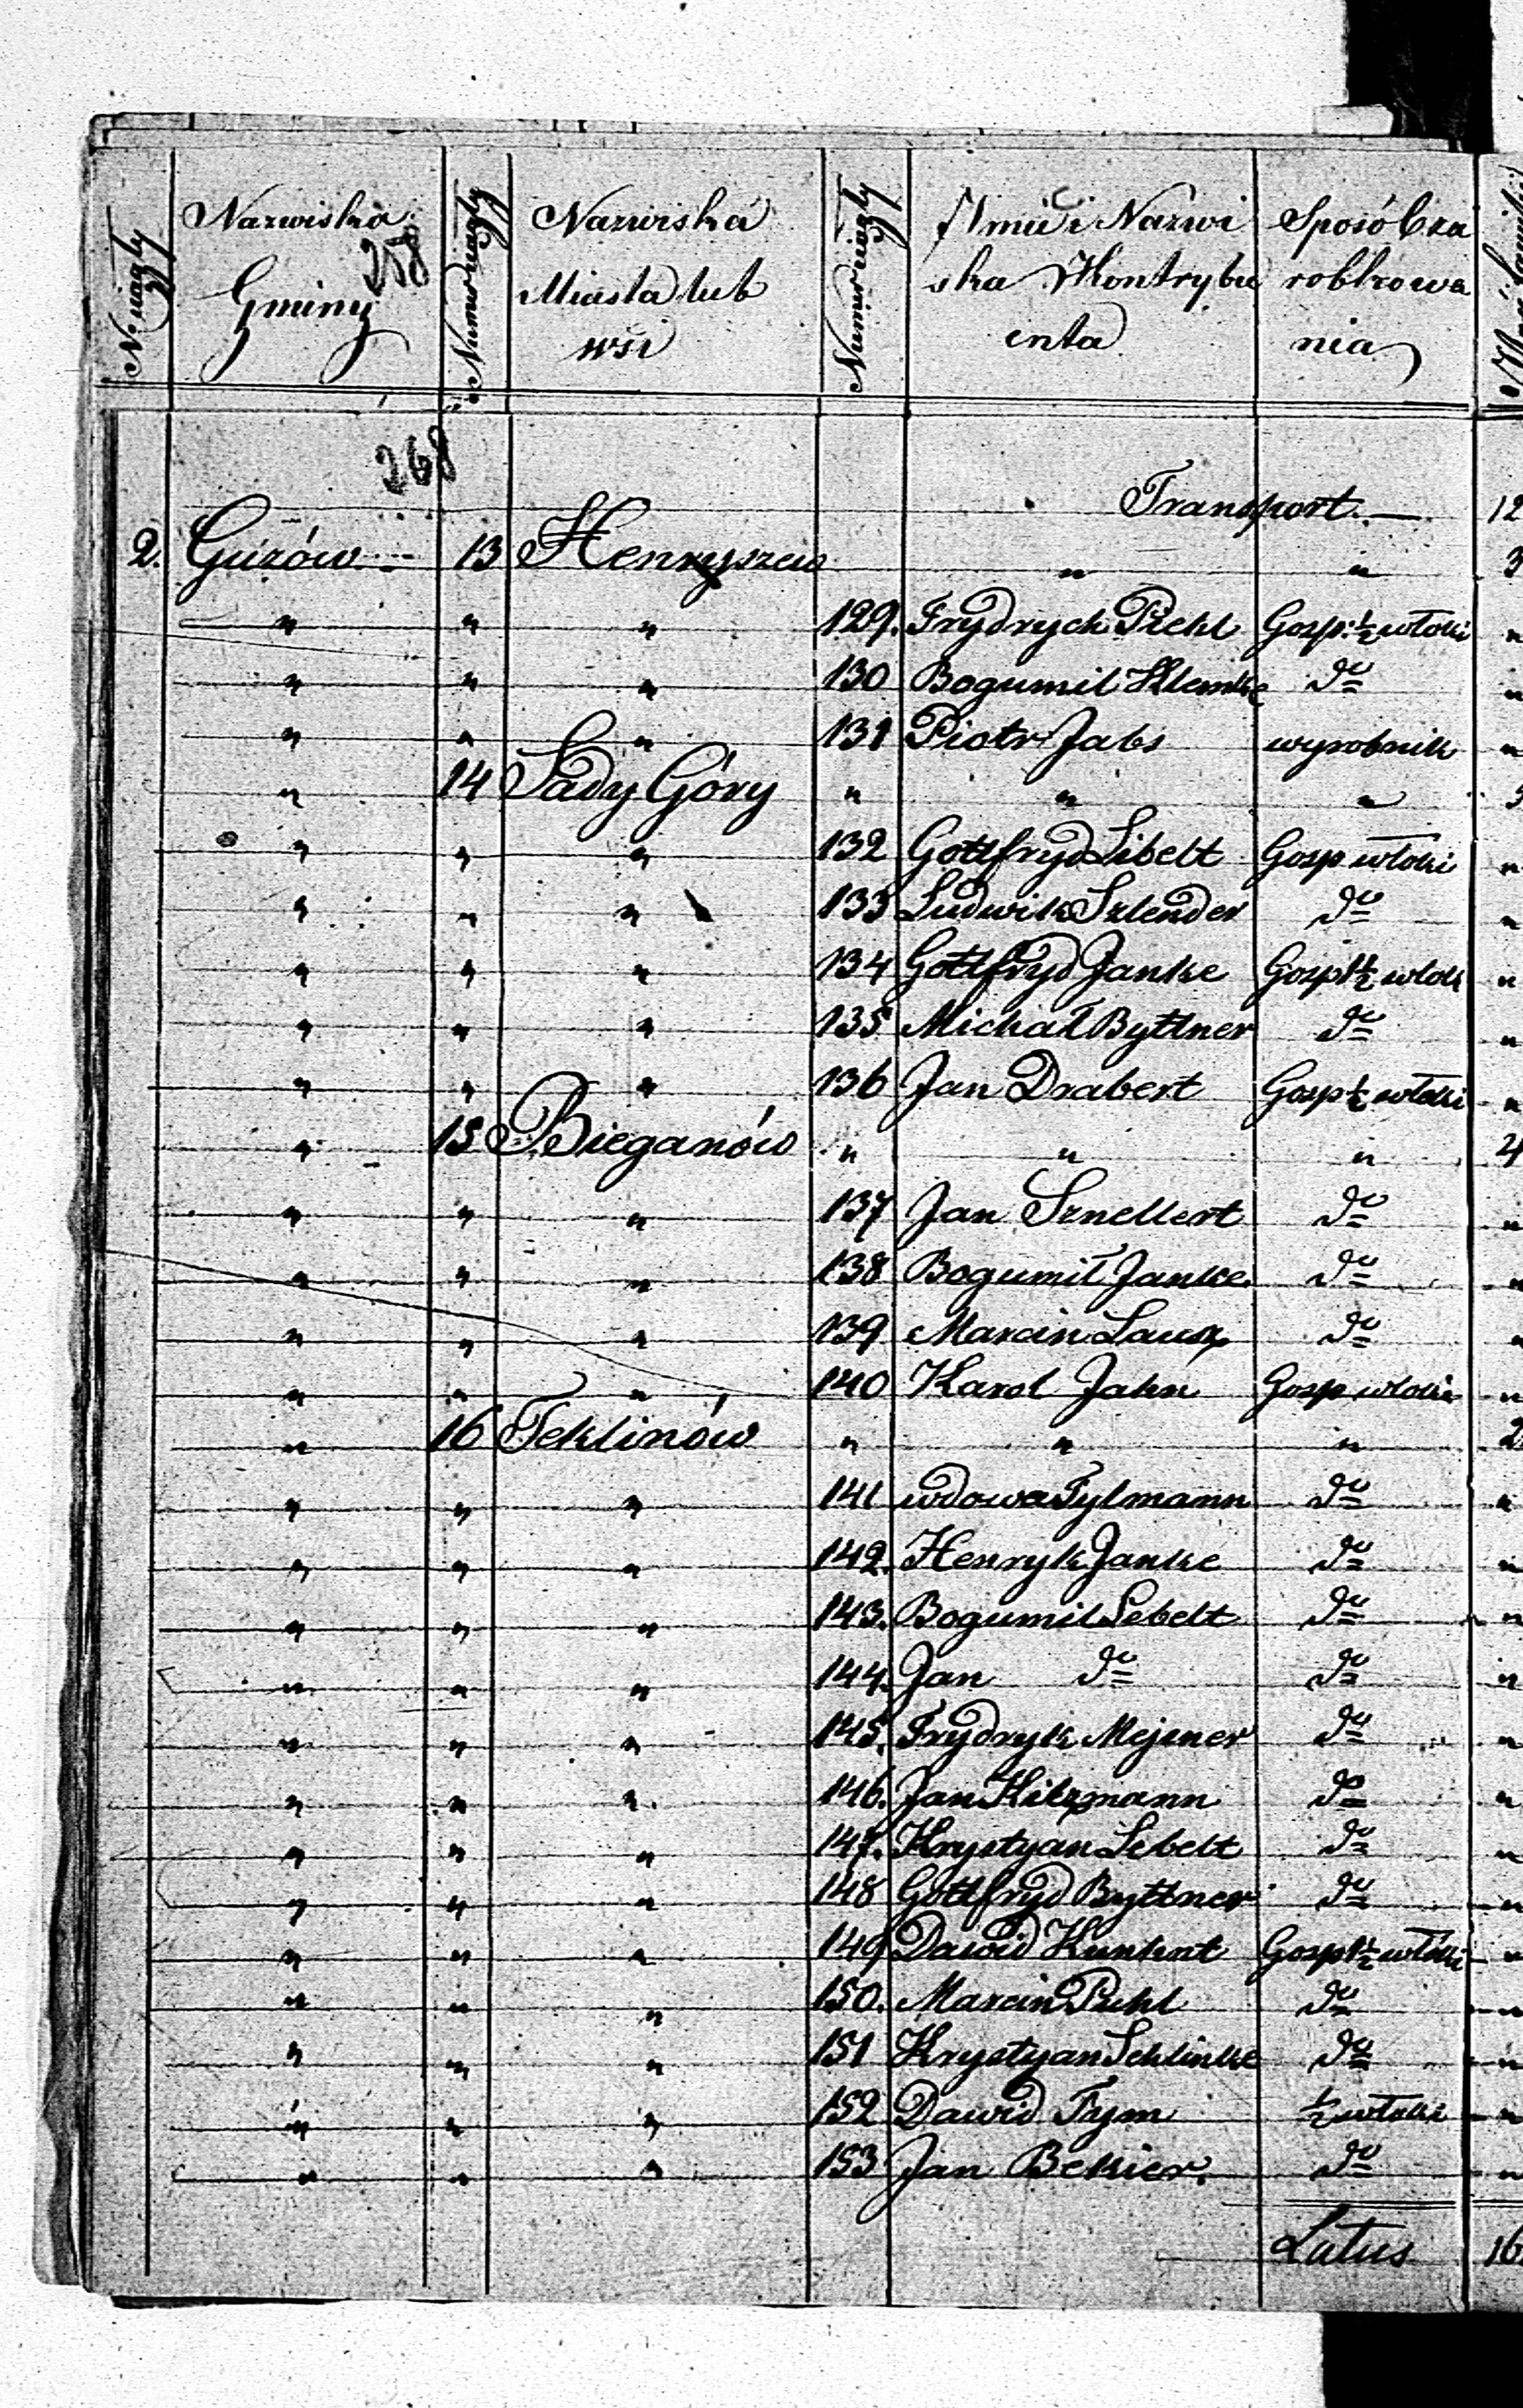 N: ciągły Nazwiska Gminy Numer ciągły Nazwiska Miasta lub wsi Numer ciągły Imię i Nazwiska Kontrybuenta Sposób zarobkowania
258
268
Transport. 12
2. Guzów 13 Henryszew " " 3
" " " 129. Frydrych Piehl Gosp: ½ włóki "
" " " 130 Bogumil Klemke do "
" " " 131 Piotr Jabs wyrobnik "
" 14 Sady Góry " " " 5
" " " 132 Gottfryd Libelt Gosp włóki "
" " " 133 Ludwik Szlender do "
" " " 134 Gottfryd Janke Gosp 1½ włóki "
" " " 135 Michał Byttner do "
" " " 136 Jan Drabert Gosp ½ włóki "
" 15 Bieganów " " " 4
" " " 137 Jan Sznellert do "
" " " 138 Bogumił Janke do "
" " " 139 Marcin Laux do "
" " " 140 Karol Jahn Gosp włóki "
" 16 Teklinów " " " 2
" " " 141 wdowa Tylmann do "
" " " 142. Henryk Janke do "
" " " 143. Bogumil Lebelt do "
" " " 144. Jan do do "
" " " 145. Frydryk Mejsner do "
" " " 146. Jan Kitzmann do "
" " " 147. Krystyan Lebelt do "
" " " 148 Gottfryd Byttner do "
" " " 149 Dawid Kunkat Gosp 1½ włóki "
" " " 150. Marcin Piehl do "
" " " 151 Krystyan Schlinke do "
" " " 152 Dawid Tym ½ włóki "
" " " 153 Jan Bekier. do "
Latus 16